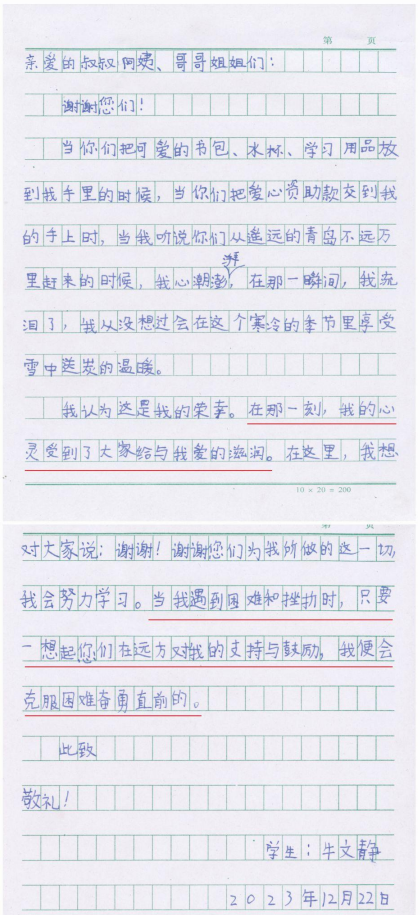 第 页
亲爱的叔叔阿姨、哥哥姐姐们：
谢谢您们！
当你们把可爱的书包、水杯、学习用品放
到我手里的时候，当你们把爱心资助款交到我
的手上时，当我听说你们从遥远的青岛不远万
里赶来的时候，我心潮澎湃，在那一瞬间，我流
泪了，我从没想过会在这个寒冷的季节里享受
雪中送炭的温暖。
我认为这是我的荣幸。在那一刻，我的心
灵受到了大家给与我爱的滋润。在这里，我想
10×20=200
第 页
对大家说：谢谢！谢谢您们为我所做的这一切，
我会努力学习。当我遇到困难和挫折时，只要
一想起您们在远方对我的支持与鼓励，我便会
克服困难奋勇直前的。
此致
敬礼！
学生：牛文静
2023年12月22日